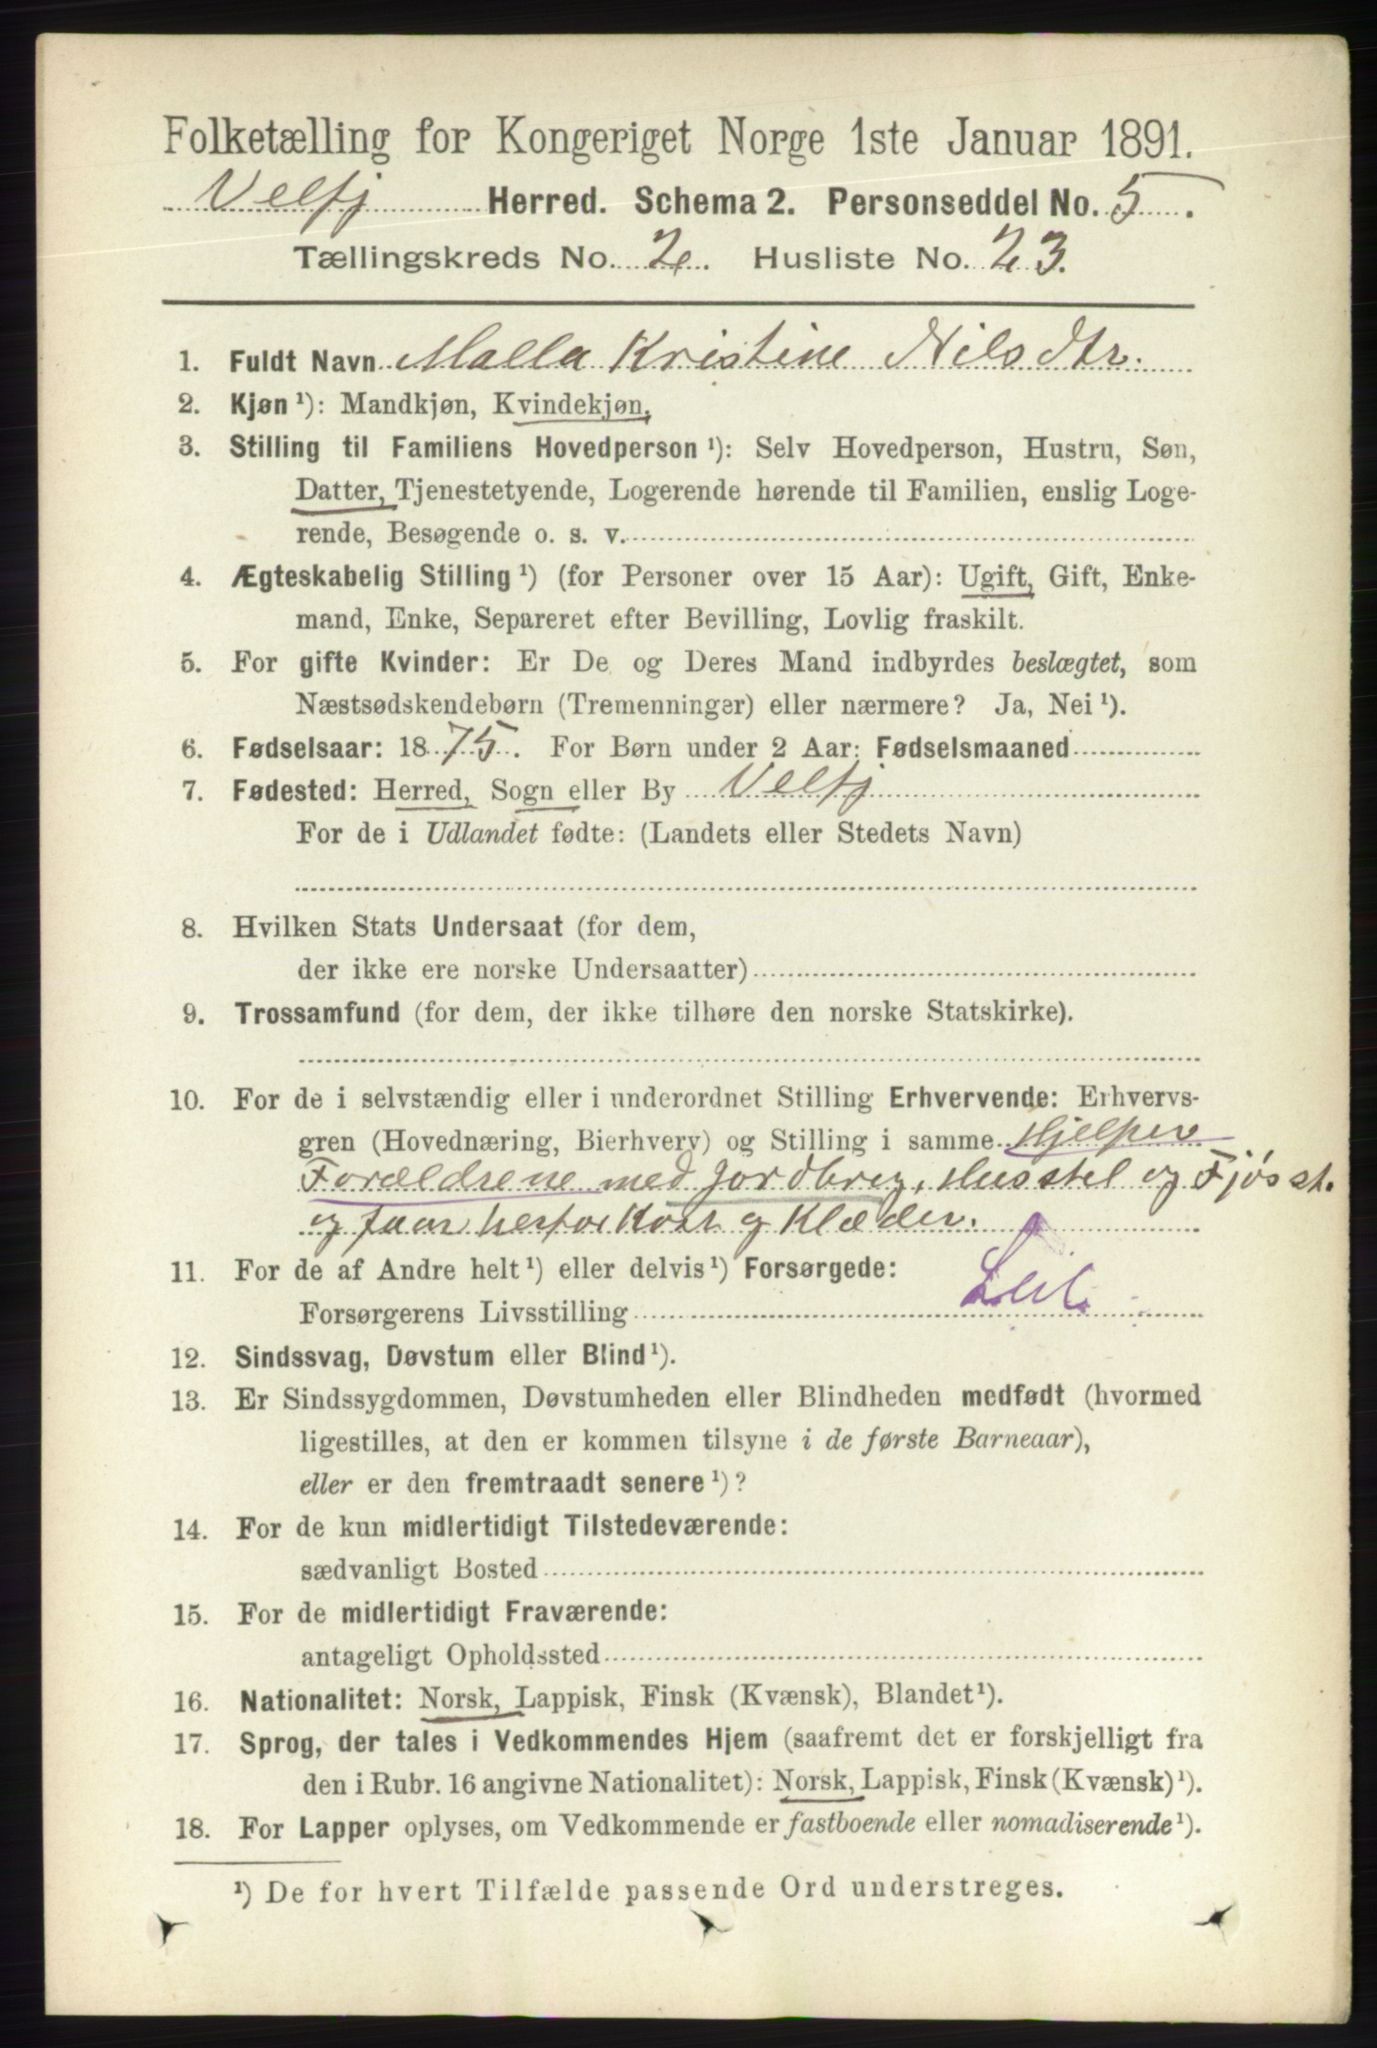 Folketælling for Kongeriget Norge 1ste Januar 1891.
Velfj Herred. Schema 2. Personseddel No. 5.
Tællingskreds No. 2. Husliste No. 23.
1. Fuldt Navn Malla Kristine Nilsdtr.
2. Kjøn ¹): Mandkjøn, Kvindekjøn,
3. Stilling til Familiens Hovedperson ¹): Selv Hovedperson, Hustru, Søn,
Datter, Tjenestetyende, Logerende hørende til Familien, enslig Loge-
rende, Besøgende o. s. v.
4. Ægteskabelig Stilling ¹) (for Personer over 15 Aar): Ugift, Gift, Enke-
mand, Enke, Separeret efter Bevilling, Lovlig fraskilt.
5. For gifte Kvinder: Er De og Deres Mand indbyrdes beslægtet, som
Næstsødskendebørn (Tremenninger) eller nærmere? Ja, Nei ¹).
6. Fødselsaar: 1875. For Børn under 2 Aar: Fødselsmaaned
7. Fødested: Herred, Sogn eller By Velfj
For de i Udlandet fødte: (Landets eller Stedets Navn)
8. Hvilken Stats Undersaat (for dem,
der ikke ere norske Undersaatter)
9. Trossamfund (for dem, der ikke tilhøre den norske Statskirke).
10. For de i selvstændig eller i underordnet Stilling Erhvervende: Erhvervs-
gren (Hovednæring, Bierhverv) og Stilling i samme Hjelper
Forældrene med Jordbrug, Husstel og Fjøsst.
og faar herfor Kost og Klæder.
11. For de af Andre helt ¹) eller delvis ¹) Forsørgede:
Forsørgerens Livsstilling
12. Sindssvag, Døvstum eller Blind ¹).
13. Er Sindssygdommen, Døvstumheden eller Blindheden medfødt (hvormed
ligestilles, at den er kommen tilsyne i de første Barneaar),
eller er den fremtraadt senere ¹)?
14. For de kun midlertidigt Tilstedeværende:
sædvanligt Bosted
15. For de midlertidigt Fraværende:
antageligt Opholdssted
16. Nationalitet: Norsk, Lappisk, Finsk (Kvænsk), Blandet ¹).
17. Sprog, der tales i Vedkommendes Hjem (saafremt det er forskjelligt fra
den i Rubr. 16 angivne Nationalitet): Norsk, Lappisk, Finsk (Kvænsk) ¹).
18. For Lapper oplyses, om Vedkommende er fastboende eller nomadiserende ¹).
¹) De for hvert Tilfælde passende Ord understreges.